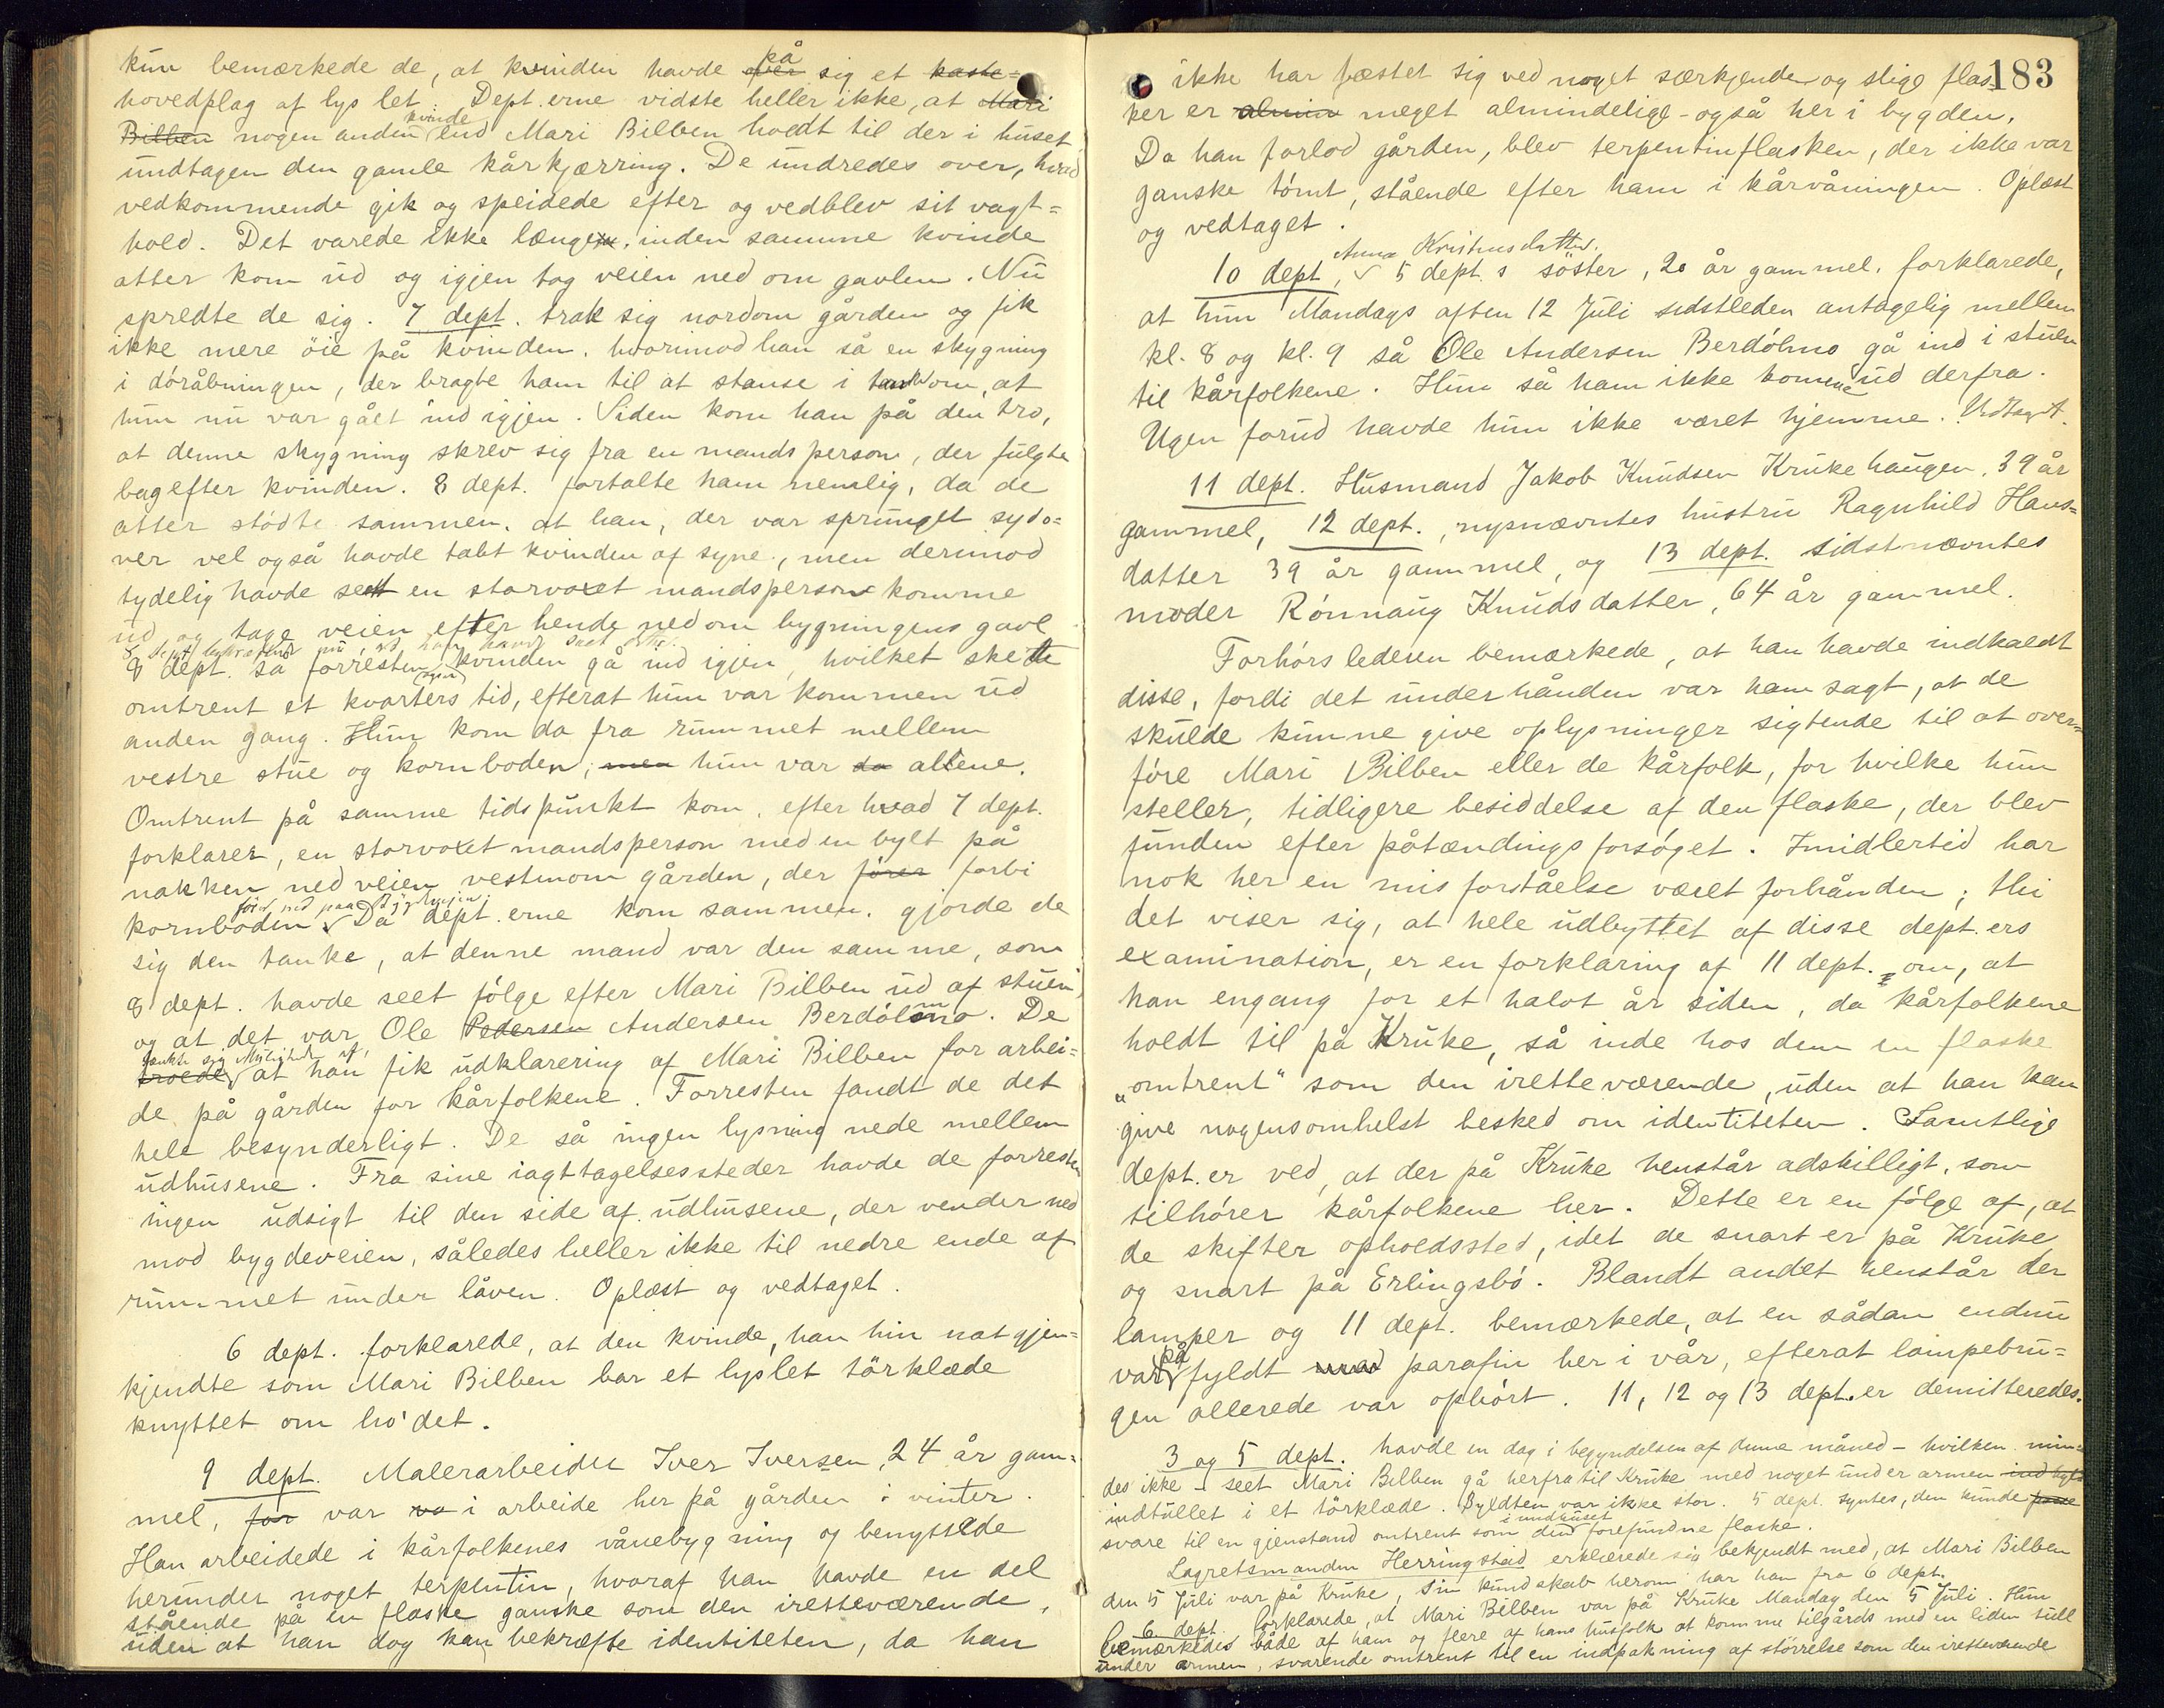 kun bemærkede de, at kvinden havde over på sig et kaste=
hovedplag af lys let. Dept.erne vidste heller ikke, at Mari
Bilben nogen anden kvinde end Mari Bilben holdt til der i huset
undtagen den gamle kårkjærring. De undredes over, hvad
vedkommende gik og speidede efter og vedblev sit vagt=
hold. Det varede ikke længe, inden samme kvinde
atter kom ud og igjen tog veien ned om gavlen. Nu
spredte de sig. 7 dept. trak sig nordom gården og fik
ikke mere öie på kvinden, hvorimod han så en skygning
i döråbningen, der bragte ham til at stanse i tanke om, at
hun nu var gået ind igjen. Siden kom han på den tro,
at denne skygning skrev sig fra en mandsperson, der fulgte
bagefter kvinden. 8 dept. fortalte ham nemlig, da de
atter stödte sammen, at han, der var sprunget sydo=
ver vel også havde tabt kvinden af syne, men derimod
tydelig havde seet en storvoxet mandsperson komme
ud og tage veien efter hende ned om bygningens gavl
8 dept. bekræfter nu, at han havde seet dette.
8 dept. så forresten kvinden gå ind igjen, hvilket skede
omtrent et kvarters tid, efterat hun var kommen ud
anden gang. Hun kom da fra rummet mellem
vestre stue og kornboden; men hun var da allene.
Omtrent på samme tidspunkt kom, efter hvad 7 dept.
forklarer, en storvoxet mandsperson med en bylt på
nakken ned veien vestenom gården, der förer forbi
kornboden för ned paa Bygdeveien. Da dept.erne kom sammen, gjorde de
sig den tanke, at denne mand var den samme, som
8 dept. havde seet fölge efter Mari Bilben ud af stuen,
og at det var Ole Pedersen Andersen Berdölmo. De
troede tænkte sig Mulighed af, at han fik udklarering af Mari Bilben for arbei=
de på gården for kårfolkene. Forresten fandt de det
hele besynderligt. De så ingen lysning nede mellem
udhusene. Fra sine iagttagelsessteder havde de forresten
ingen udsigt til den side af udhusene, der vender ned
mod bygdeveien, således heller ikke til nedre ende af
rummet under låven. Oplæst og vedtaget.
6 dept. forklarede, at den kvinde, han hin nat gjen=
kjendte som Mari Bilben bar et lyslet törklæde
knyttet om ho'det.
9 dept. Malerarbeider Iver Iversen, 24 år gam=
mel, for var va i arbeide her på gården i vinter.
Han arbeidede i kårfolkenes vånebygning og benyttede
herunder noget terpentin, hvoraf han havde en del
stående på en flaske ganske som den iretteværende,
uden at han dog kan bekræfte identiteten, da han
183
ikke har fæstet sig ved noget særkjende og slige flas=
ker er almin meget almindelige - også her i bygden.
Da han forlod gården, blev terpentinflasken, der ikke var
ganske tömt, stående efter ham i kårvåningen. Oplæst
og vedtaget.
10 dept, Anna Kristensdatter. 5 dept.s söster, 20 år gammel, forklarede,
at hun Mandags aften 12 Juli sidstleden antagelig mellem
kl. 8 og kl. 9 så Ole Andersen Berdölmo gå ind i stuen
til kårfolkene. Hun så ham ikke komme ud derfra.
Ugen forud havde hun ikke været hjemme. Vedtaget.
11 dept. Husmand Jakob Knudsen Krukehaugen, 39 år
gammel, 12 dept., nysnævntes hustru Ragnhild Hans=
datter 39 år gammel, og 13 dept. sidstnævntes
moder Rönnaug Knudsdatter, 64 år gammel.
Forhörslederen bemærkede, at han havde indkaldt
disse, fordi det underhånden var ham sagt, at de
skulde kunne give oplysninger sigtende til at over=
före Mari Bilben eller de kårfolk, for hvilke hun
steller, tidligere besiddelse af den flaske, der blev
funden efter påtændingsforsöget. Imidlertid har
nok her en misforståelse været forhånden; thi
det viser sig, at hele udbyttet af disse dept.ers
examination, er en forklaring af 11 dept. om, at
han engang for et halvt år siden, da kårfolkene
holdt til på Kruke, så inde hos dem en flaske
„omtrent“ som den iretteværende, uden at han kan
give nogensomhelst besked om identiteten. Samtlige
dept.er ved, at der på Kruke henstår adskilligt, som
tilhörer kårfolkene her. Dette er en fölge af, at
de skifter opholdssted, idet de snart er på Kruke
og snart på Erlingsbö. Blandt andet henstår der
lamper og 11 dept. bemærkede, at en sådan endnu
var på fyldt med parafin her i vår, efterat lampebru=
gen allerede var ophört. 11, 12 og 13 dept.er demitteredes.
3 og 5 dept. havde en dag i begyndelsen af denne måned - hvilken min=
des ikke - seet Mari Bilben gå herfra til Kruke med noget under armen ind
indtullet i et törklæde. Byldten var ikke stor. 5 dept. syntes, den kunde
svare til en gjenstand omtrent som den i undhuset forefundne flaske.
Lagretsmanden Herringstad erklærede sig bekjendt med, at Mari Bilben
den 5 Juli var på Kruke, sin kundskab herom har han fra 6 dept.
6 dept. forklarede, at Mari Bilben var på Kruke Mandag den 5 Juli. Hun
bemærkedes både af ham og flere af hans husfolk at komme tilgårds med en liden tull
under armen, svarende omtrent til en indpakning af störrelse som den iretteværende